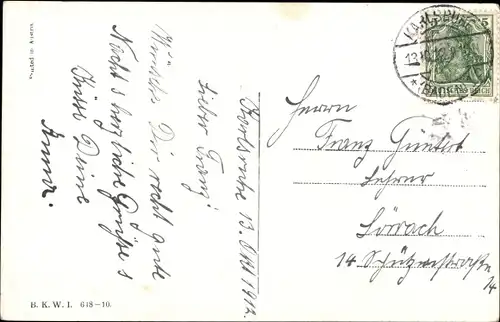 Printed in Austria
Karlsruhe 13. Okt 1912.
Lieber Franz!
Wünsche Dir recht gute
Nacht & herzliche Grüsse &
Küsse Deine
KARLSRUHE
13.10.12
* (BADEN)
5
Herrn
Franz Güntert
Lehrer
Lörrach
14 Schützenstraße
14
B. K. W. I. 648-10.